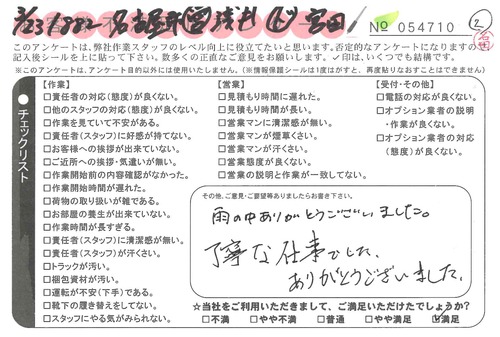 3/23 1882 名古屋 営 浅井 宮田
No 054710 ② 名
このアンケートは、弊社作業スタッフのレベル向上に役立てたいと思います。否定的なアンケートになりますので、
記入後シールを上に貼って下さい。数多くの正直なご意見をお願いします。✓印は、いくつでも結構です。
※このアンケートは、アンケート目的以外には使用いたしません。(※情報保護シールは1度はがすと、再度貼りなおすことはできません)
チェックリスト
【作業】
□責任者の対応(態度)が良くない。
□他のスタッフの対応(態度)が良くない。
□作業を見ていて不安がある。
□責任者(スタッフ)に好感が持てない。
□お客様への挨拶が出来ていない。
□ご近所への挨拶・気遣いが無い。
□作業開始前の内容確認がなかった。
□作業開始時間が遅れた。
□荷物の取り扱いが雑である。
□お部屋の養生が出来ていない。
□作業時間が長すぎる。
□責任者(スタッフ)に清潔感が無い。
□責任者(スタッフ)が汗くさい。
□トラックが汚い。
□梱包資材が汚い。
□運転が不安(下手)である。
□靴下の履き替えをしてない。
□スタッフにやる気がみられない。
【営業】
□見積もり時間に遅れた。
□見積もり時間が長い。
□営業マンに清潔感が無い。
□営業マンが煙草くさい。
□営業マンが汗くさい。
□営業態度が良くない。
□営業の説明と作業が一致してない。
【受付・その他】
□電話の対応が良くない。
□オプション業者の説明
・作業が良くない。
□オプション業者の対応
(態度)が良くない。
その他、ご意見・ご要望等ありましたらお書き下さい。
雨の中ありがとうございました。
丁寧な仕事でした、
ありがとうございました。
☆当社をご利用いただきまして、ご満足いただけたでしょうか?
□不満 □やや不満 □普通 □やや満足 ☑満足